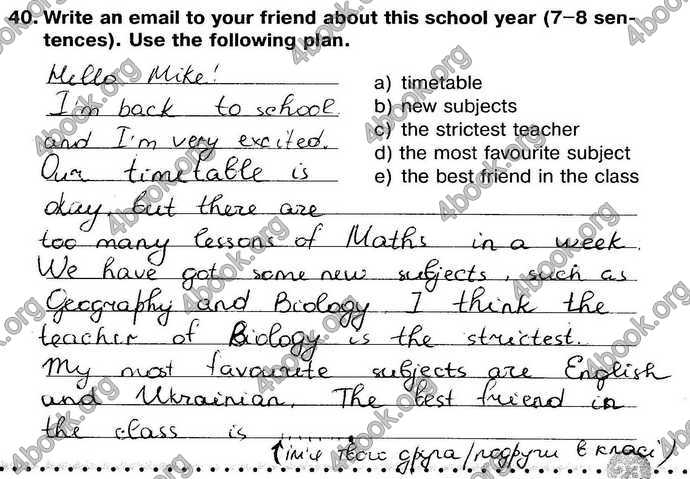 40. Write an email to your friend about this school year (7–8 sen-
tences). Use the following plan.
Hello Mike!
I'm back to school
and I'm very excited.
Our timetable is
okay, but there are
too many lessons of Maths in a week.
We have got some new subjects, such as
Geography and Biology. I think the
teacher of Biology is the strictest.
My most favourite subjects are English
and Ukrainian. The best friend in
the class is ........
(ім'я твого друга/подруги в класі)
a) timetable
b) new subjects
c) the strictest teacher
d) the most favourite subject
e) the best friend in the class
4book.org